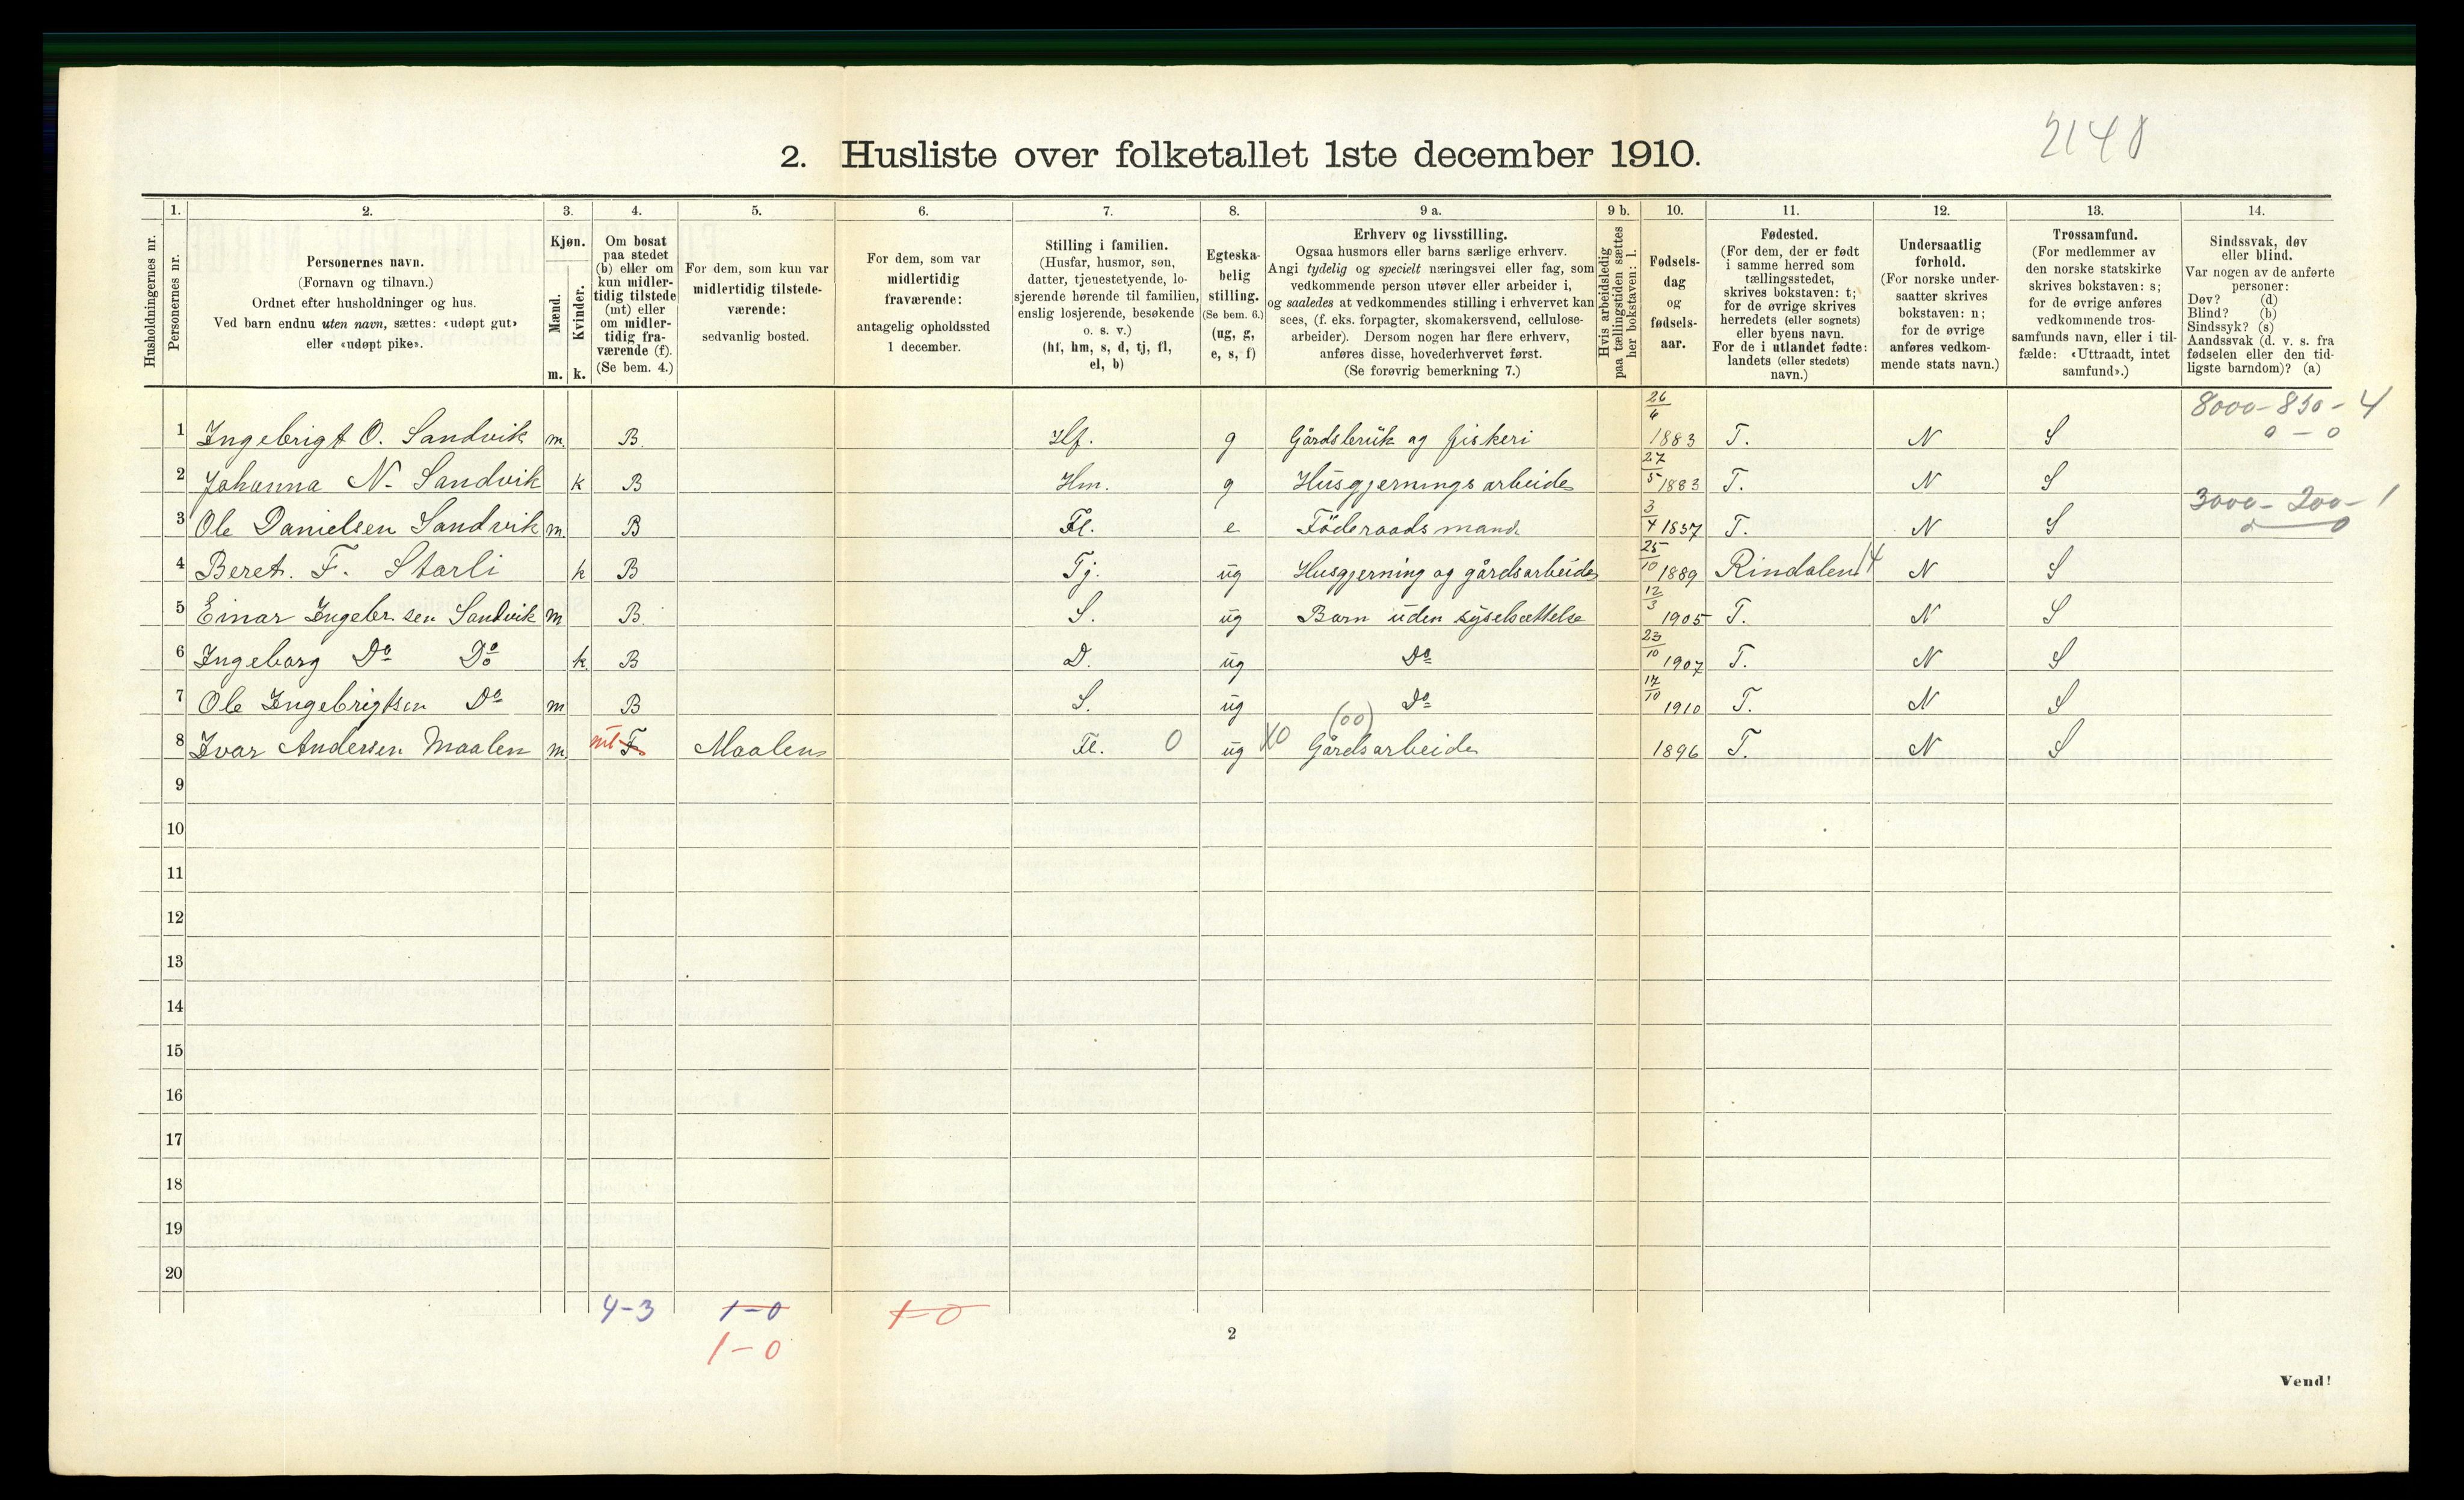 2148
2. Husliste over folketallet 1ste december 1910.
Husholdningernes nr.
1. Personernes nr.
2. Personernes navn. (Fornavn og tilnavn.) Ordnet efter husholdninger og hus. Ved barn endnu uten navn, sættes: «udøpt gut» eller «udøpt pike».
3. Kjøn. Mænd. m. Kvinder. k.
4. Om bosat paa stedet (b) eller om kun midlertidig tilstede (mt) eller om midlertidig fraværende (f). (Se bem. 4.)
5. For dem, som kun var midlertidig tilstedeværende: sedvanlig bosted.
6. For dem, som var midlertidig fraværende: antagelig opholdssted 1 december.
7. Stilling i familien. (Husfar, husmor, søn, datter, tjenestetyende, losjerende hørende til familien, enslig losjerende, besøkende o. s. v.) (hf, hm, s, d, tj, fl, el, b)
8. Egteskabelig stilling. (Se bem. 6.) (ug, g, e, s, f)
9 a. Erhverv og livsstilling. Ogsaa husmors eller barns særlige erhverv. Angi tydelig og specielt næringsvei eller fag, som vedkommende person utøver eller arbeider i, og saaledes at vedkommendes stilling i erhvervet kan sees, (f. eks. forpagter, skomakersvend, cellulosearbeider). Dersom nogen har flere erhverv, anføres disse, hovederhvervet først. (Se forøvrig bemerkning 7.)
9 b. Hvis arbeidsledig paa tællingstiden sættes her bokstaven: l.
10. Fødselsdag og fødselsaar.
11. Fødested. (For dem, der er født i samme herred som tællingsstedet, skrives bokstaven: t; for de øvrige skrives herredets (eller sognets) eller byens navn. For de i utlandet fødte: landets (eller stedets) navn.)
12. Undersaatlig forhold. (For norske undersaatter skrives bokstaven: n; for de øvrige anføres vedkommende stats navn.)
13. Trossamfund. (For medlemmer av den norske statskirke skrives bokstaven: s; for de øvrige anføres vedkommende trossamfunds navn, eller i tilfælde: «Uttraadt, intet samfund».)
14. Sindssvak, døv eller blind. Var nogen av de anførte personer: Døv? (d) Blind? (b) Sindssyk? (s) Aandssvak (d. v. s. fra fødselen eller den tidligste barndom)? (a)
8000-830-4
0-0
1 Ingebrigt O. Sandvik m. B. Hf. g Gårdsbrük og fiskeri 26/6 1883 T. N S
2 Johanna N. Sandvik k B Hm. g Husgjernings arbeide 27/5 1883 T. N S
3000-200-1
3 Ole Danielsen Sandvik m. B Fl. e Föderaads mand 3/4 1837 T. N S
4 Beret. F. Starli k B Tj. ug Husgjerning og gårdsarbeide 25/10 1889 Rindalen N S
5 Einar Ingebr.sen Sandvik m B. S. ug Barn uden syselsættelse 12/3 1905 T. N S
6 Ingeborg Do Do k. B D. ug Do 23/10 1907 T. N S
7 Ole Ingebrigtsen Do m B S. ug Do 17/10 1910 T. N S
8 Ivar Andersen Maalen m. mt F Maalen Fl. 0 ug X0 (00) Gårdsarbeide 1896 T. N S
9
10
11
12
13
14
15
16
17
18
19
20
4-3 1-0 1-0
1-0
2
Vend!